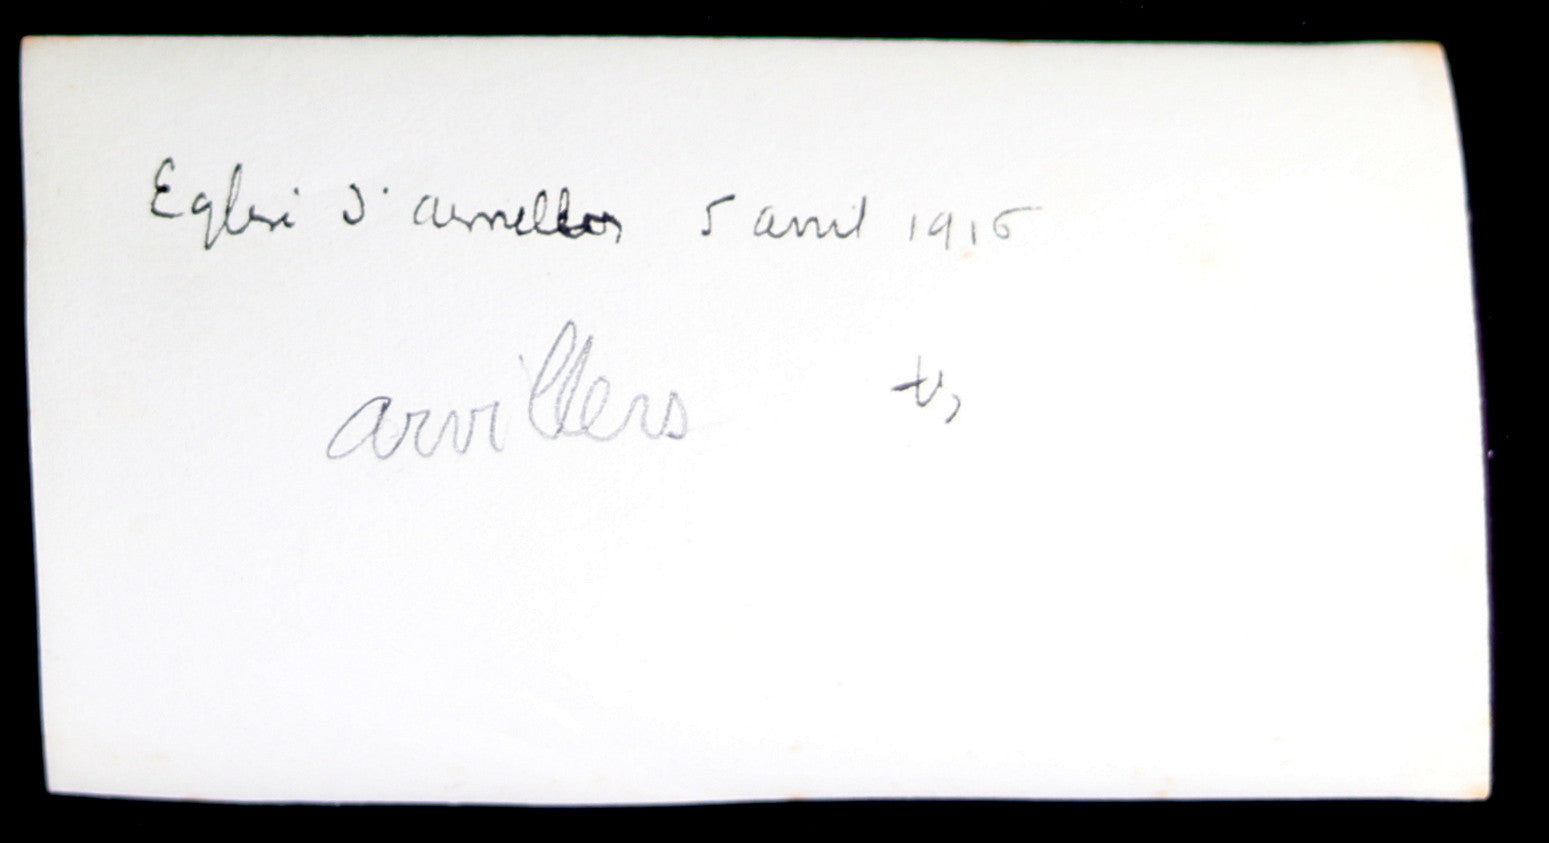 Eglise d'arvillers 5 avril 1915
arvillers